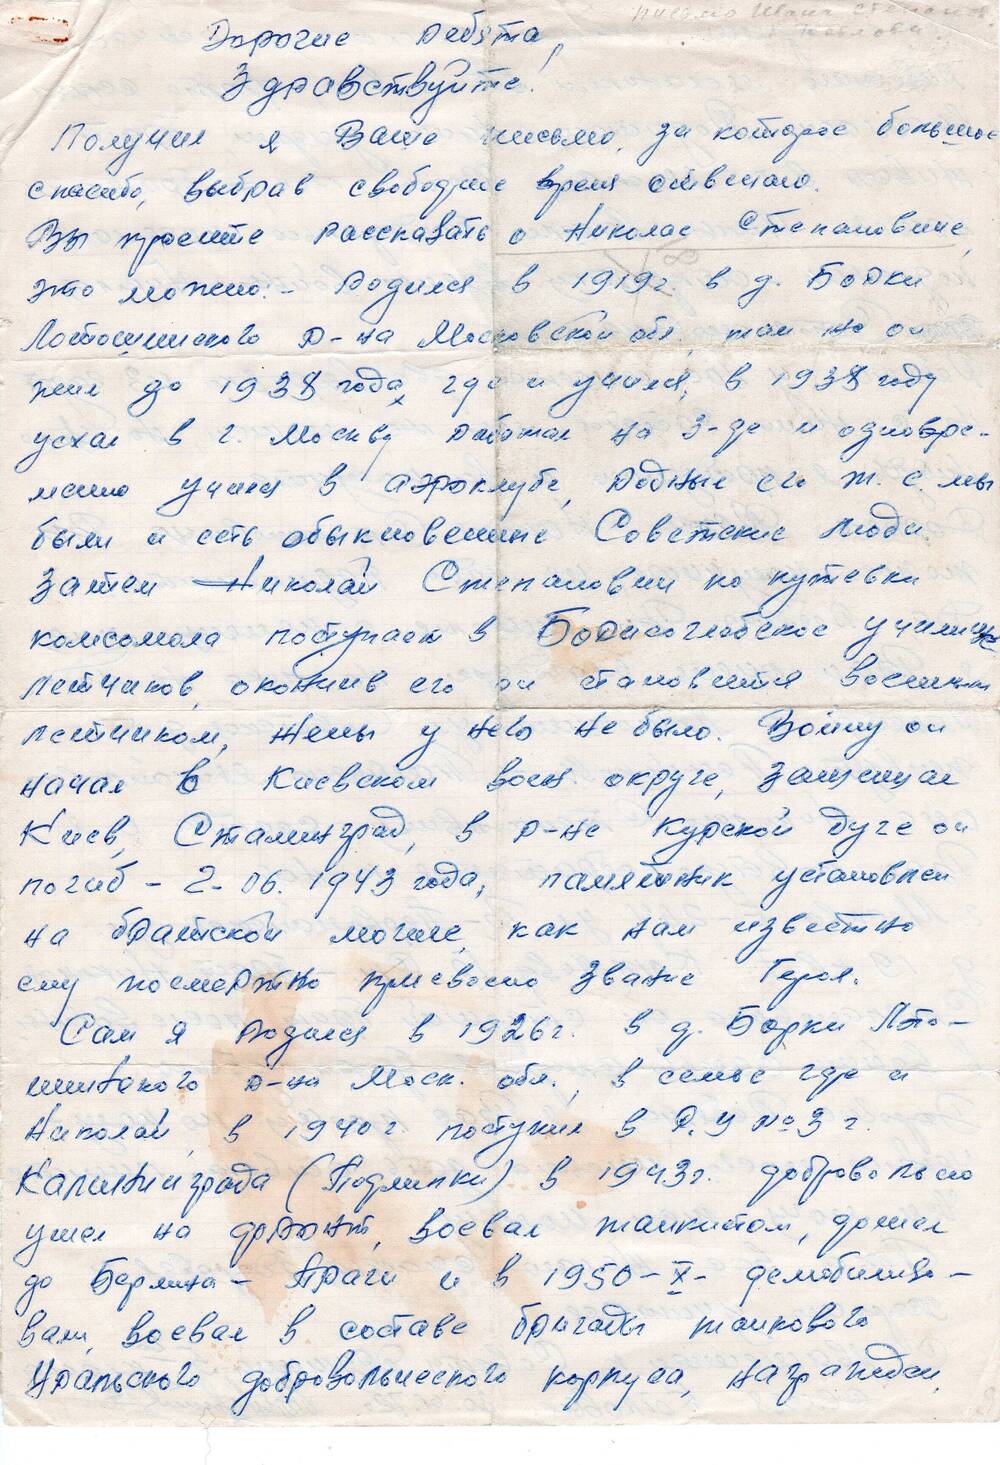 Дорогие ребята,
Здравствуйте!
Получил я Ваше письмо, за которое большое
спасибо, выбрав свободное время отвечаю.
Вы просите рассказать о Николае Степановиче,
это можно:- Родился в 1919г. в д. Борки
Лотошинского р-на Московской обл. там же он
жил до 1938 года, где и учился, в 1938 году
уехал в г. Москву работал на з-де и одновре-
менно учился в аэроклубе, Родные его т. е. мы
были и есть обыкновенные Советские люди.
Затем Николай Степанович по путевки
комсомола поступает в Борисоглебское училище
летчиков, окончив его он становится военным
летчиком, жены у него не было. Войну он
начал в Киевском воен. округе, защищал
Киев, Сталинград, в р-не Курской дуге он
погиб - 2-06. 1943 года, памятник установлен
на братской могиле, как нам известно
ему посмертно присвоено звание Героя.
Сам я родился в 1926г. в д. Борки Лото-
шинского р-на Моск. обл., в семье где и
Николай, в 1940г. поступил в Р.У №3 г.
Калининграда (Подлипки) в 1943г. добровольно
ушел на фронт, воевал танкистом, дошел
до Берлина - Праги и в 1950-X- демобилизо-
вали, воевал в составе бригады танкового
Уральского добровольческого корпуса, награжден,